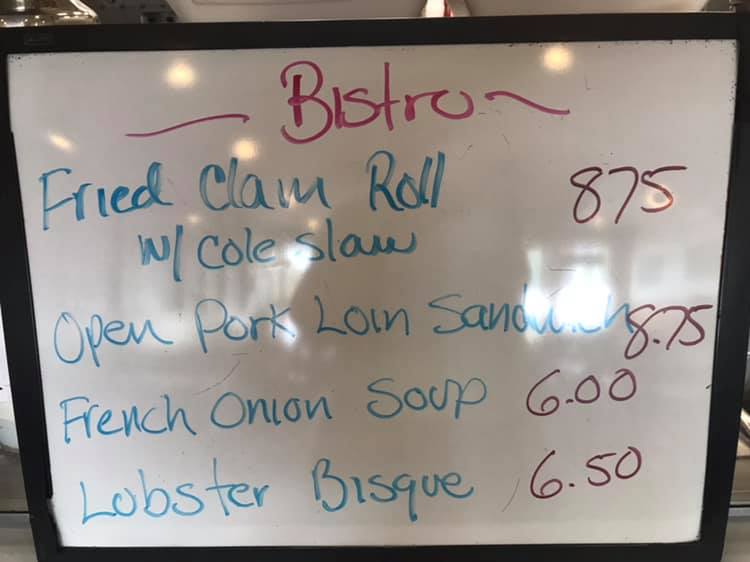 Bistro
Fried Clam Roll 875
w/ Cole slaw
Open Pork Loin Sandwich 8.75
French Onion Soup 6.00
Lobster Bisque 6.50